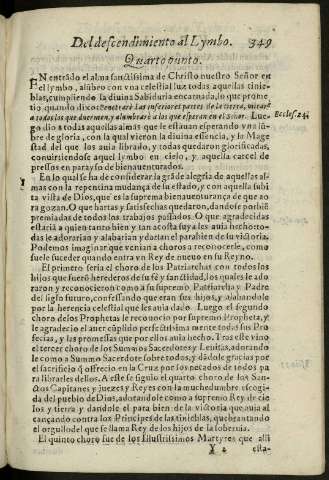 Del descendimiento al Lymbo. 349
Quarto punto.
EN entrãdo el alma sanctissima de Christo nuestro Señor en
el lymbo, alũbro con vna celestial luz todas aquellas tinie-
blas, cumpliẽdo la diuina Sabiduria encarnada, lo que prome-
tio quando dixo: Penetrarè las inferiores partes de la tierra, mirarè
a todos los que duermen, y alumbrarè a los que esperan en el Señor. Lue-
go dio a todas aquellas almas que le estauan esperando vna lũ-
bre de gloria, con la qual vieron la diuina essencia, y la Mage
stad del que los auia librado, y todas quedaron glorificadas,
conuirtiendose aquel lymbo en cielo, y aquella carcel de
pressos en parayso de bienauenturados.
En lo qual se ha de considerar la grãde alegria de aquellas al-
mas con la repentina mudança de su estado, y con aquella subi
ta vista de Dios, que es la suprema bienauenturança de que ao
ra gozan. O que hartas y satisfechas quedaron, dandose por biẽ
premiadas de todos los trabajos passados. O que agradecidas
estariã a quien tanto bien y tan a costa suya les auia hecho: to-
das le adorarian y alabarian y dariã el parabien de su victoria.
Podemos imaginar que venian a choros a reconocerle, como
suele suceder quando entra vn Rey de nueuo en su Reyno.
El primero seria el choro de los Patriarchas con todos los
hijos que fuerõ herederos de su fè y sanctidad, los quales le ado
raron y reconocieron como a su supremo Patriarcha y Padre
del siglo futuro, confessando que eran sus hijos, y alabandole
por la herencia celestial que les auia dado. Luego el segundo
choro de los Prophetas le reconocio por supremo Propheta, y
le agradecio el auer cũplido perfectissimamente todas sus Pro
fecias, y las promessas que por ellos auia hecho. Tras este vino
el tercer choro de los Sumos Sacerdotes y Leuitas, adorando
le como a Summo Sacerdote sobre todos, y dãdole gracias por
el sacrificio q̃ offrecio en la Cruz por los pecados de todos pa
ra librarles dellos. A este se siguio el quarto choro de los San-
ctos Capitanes y juezes y Reyes con la muchedumbre escogi-
da del pueblo de Dios, adotandole como a supremo Rey de cie
los y tierra y dandole el para bien de la victoria que auia al
cançando contra los Principes de las tinieblas, quebrantando
el orgullo del que se llama Rey de los hijos de la soberuia.
El quinto choro fue de los Illustrissimos Martyres que alli
X 2 esta-
Eccles. 24